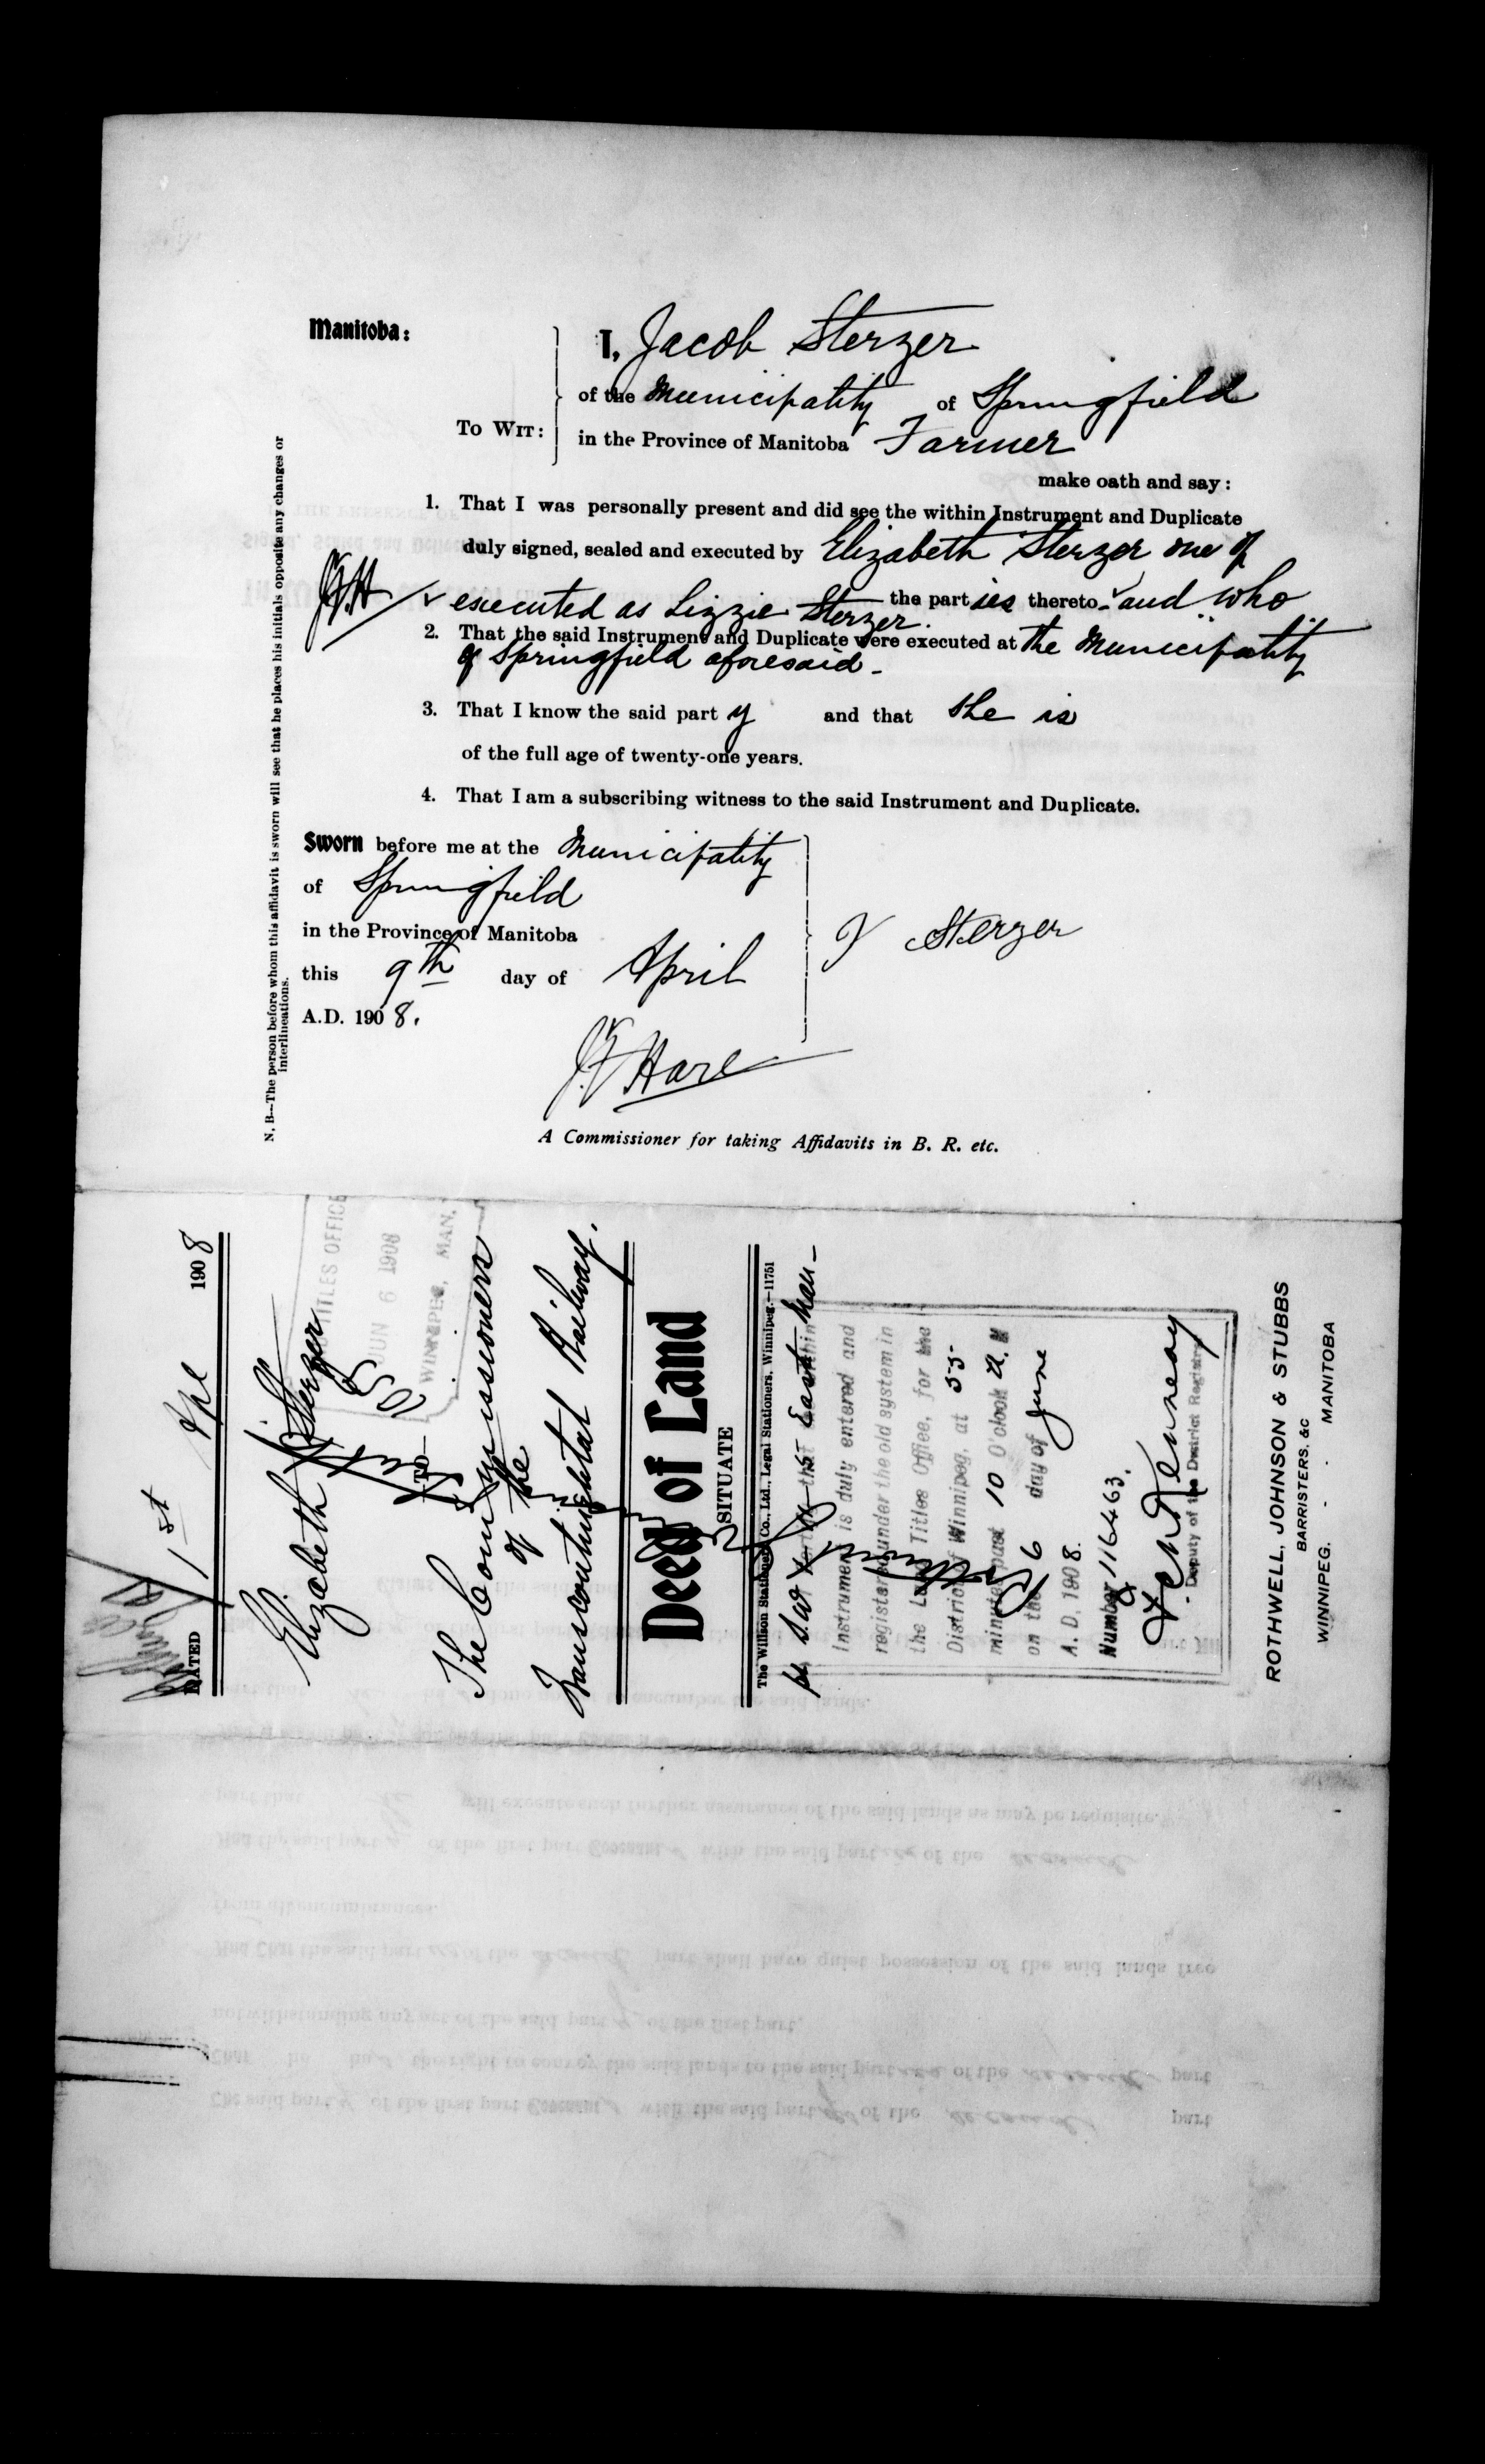 Manitoba:
To Wit:
I, Jacob Sterzer
of the Municipality of Springfield
in the Province of Manitoba Farmer
make oath and say:
1. That I was personally present and did see the within Instrument and Duplicate
duly signed, sealed and executed by Elizabeth Sterzer one of
the parties thereto and who
executed as Lizzie Sterzer.
2. That the said Instrument and Duplicate were executed at the Municipality
of Springfield aforesaid
3. That I know the said party and that she is
of the full age of twenty-one years.
4. That I am a subscribing witness to the said Instrument and Duplicate.
Sworn before me at the Municipality
of Springfield
in the Province of Manitoba
this 9th day of April
A.D. 1908.
J Sterzer
J.F. Hare
A Commissioner for taking Affidavits in B. R. etc.
N. B—The person before whom this affidavit is sworn will see that he places his initials opposite any changes or
interlineations.
DATED 1st Apl 1908
Elizabeth Sterzer
TITLES OFFICE
JUN 6 1908
WINNIPEG, MAN.
TO
The Commissioners
of the
Transcontinental Railway.
Deed of Land
SITUATE
The Willson Stationery Co., Ltd., Legal Stationers, Winnipeg.—11751
that the within
Instrument is duly entered and
registered under the old system in
the Land Titles Office, for the
District of Winnipeg, at 55
minutes past 10 O'clock A. M
on the 6 day of June
A. D. 1908.
Number 116463.
Deputy of the District Registrar
ROTHWELL, JOHNSON & STUBBS
BARRISTERS, &c
WINNIPEG. - - MANITOBA